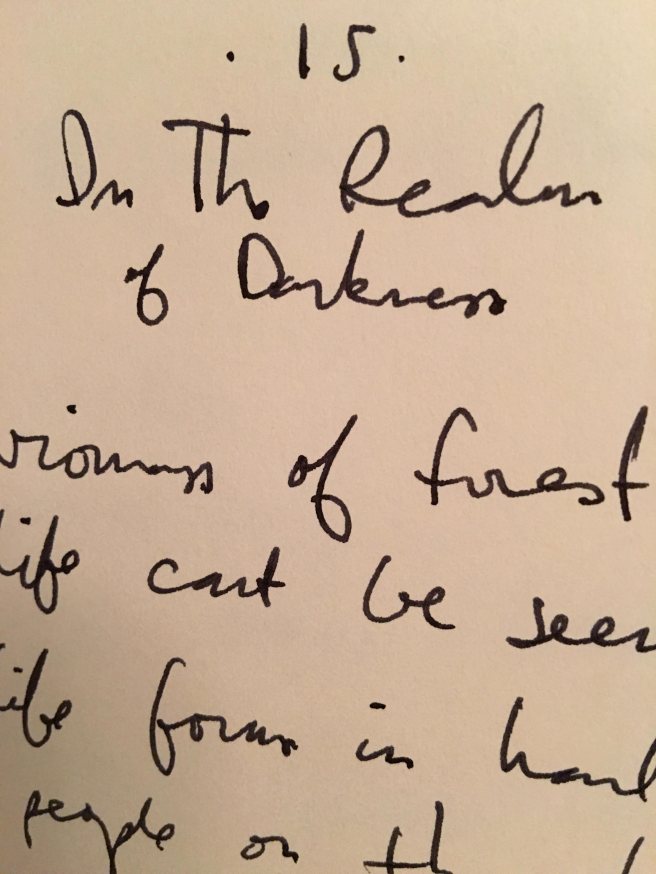 . 15 .
In The Realm
of Darkness
biomass of forest
life cant be seen
life forms in
people on